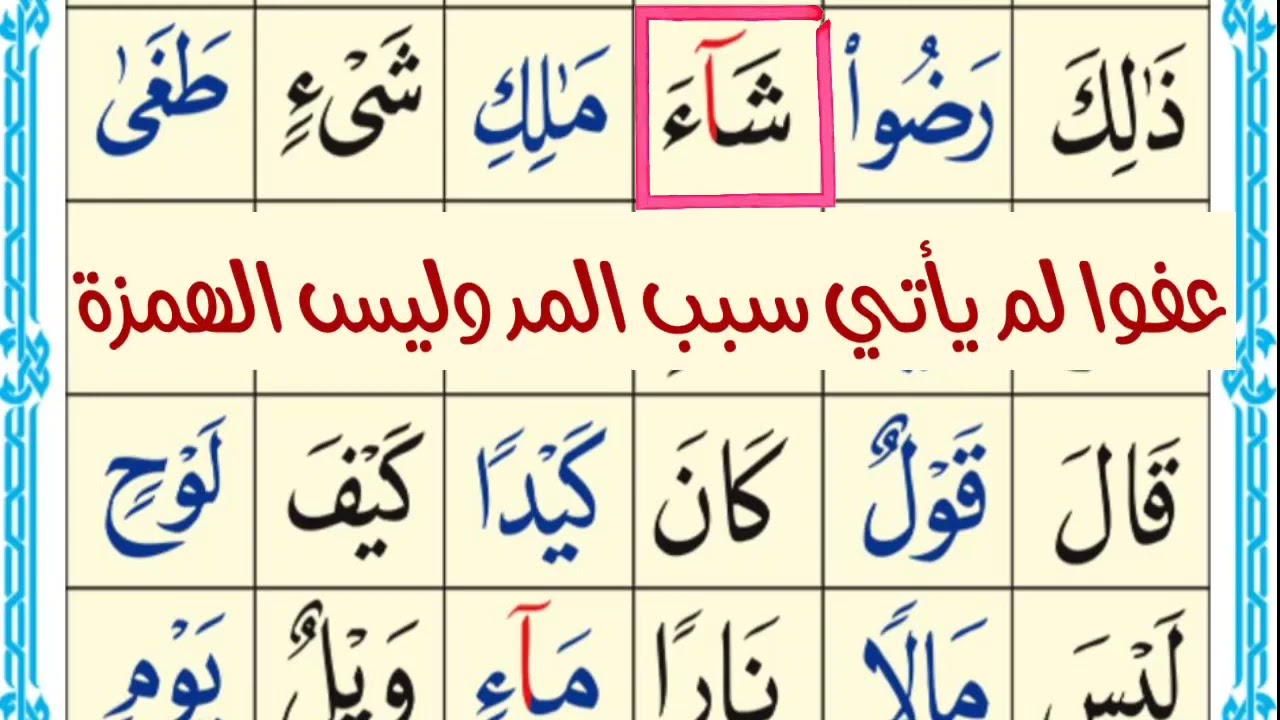 ذَٰلِكَ رَضُوا۟ شَآءَ مَٰلِكِ شَىْءٍ طَغَىٰ
عفوا لم يأتي سبب المر وليس الهمزة
قَالَ قَوْلٌ كَانَ كَيْدًا كَيْفَ لَوْحٍ
لَيْسَ مَالًا نَارًا مَآءٍ وَيْلٌ يَوْمٍ